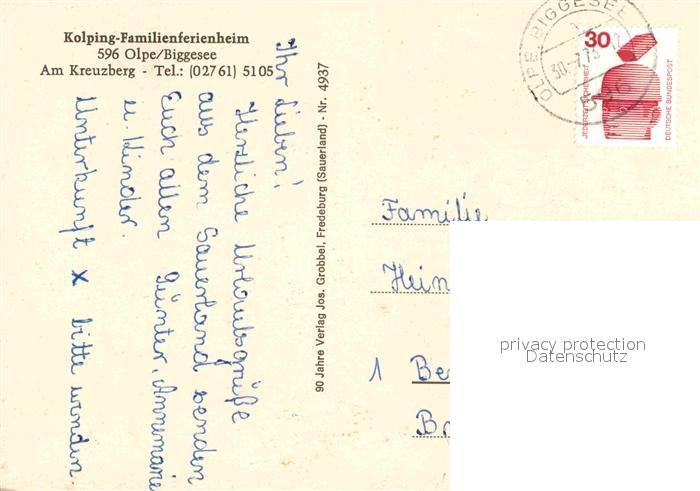 Kolping-Familienferienheim
596 Olpe/Biggesee
Am Kreuzberg - Tel.: (0 27 61) 51 05
Ihr Lieben!
Herzliche Urlaubsgrüße
aus dem Sauerland senden
Euch allen Günter, Annemarie
u. Kinder.
Unterkunft x bitte wenden.
90 Jahre Verlag Jos. Grobbel, Fredeburg (Sauerland) - Nr. 4937
OLPE, BIGGESEE
30.-7.73
596
30
JEDERZEIT SICHERHEIT
DEUTSCHE BUNDESPOST
Familie
Hein
1 Be
privacy protection
Datenschutz